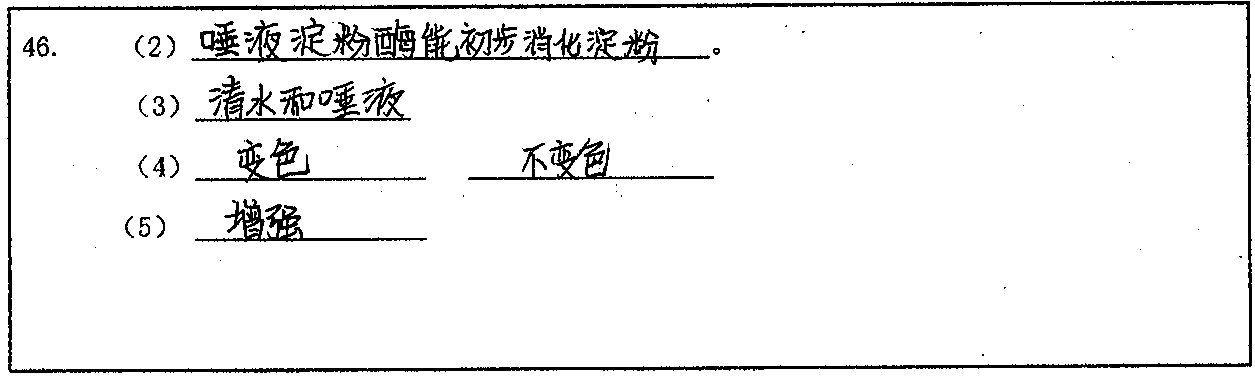 46. (2) 唾液淀粉酶能初步消化淀粉。
(3) 清水和唾液
(4) 变色 不变色
(5) 增强